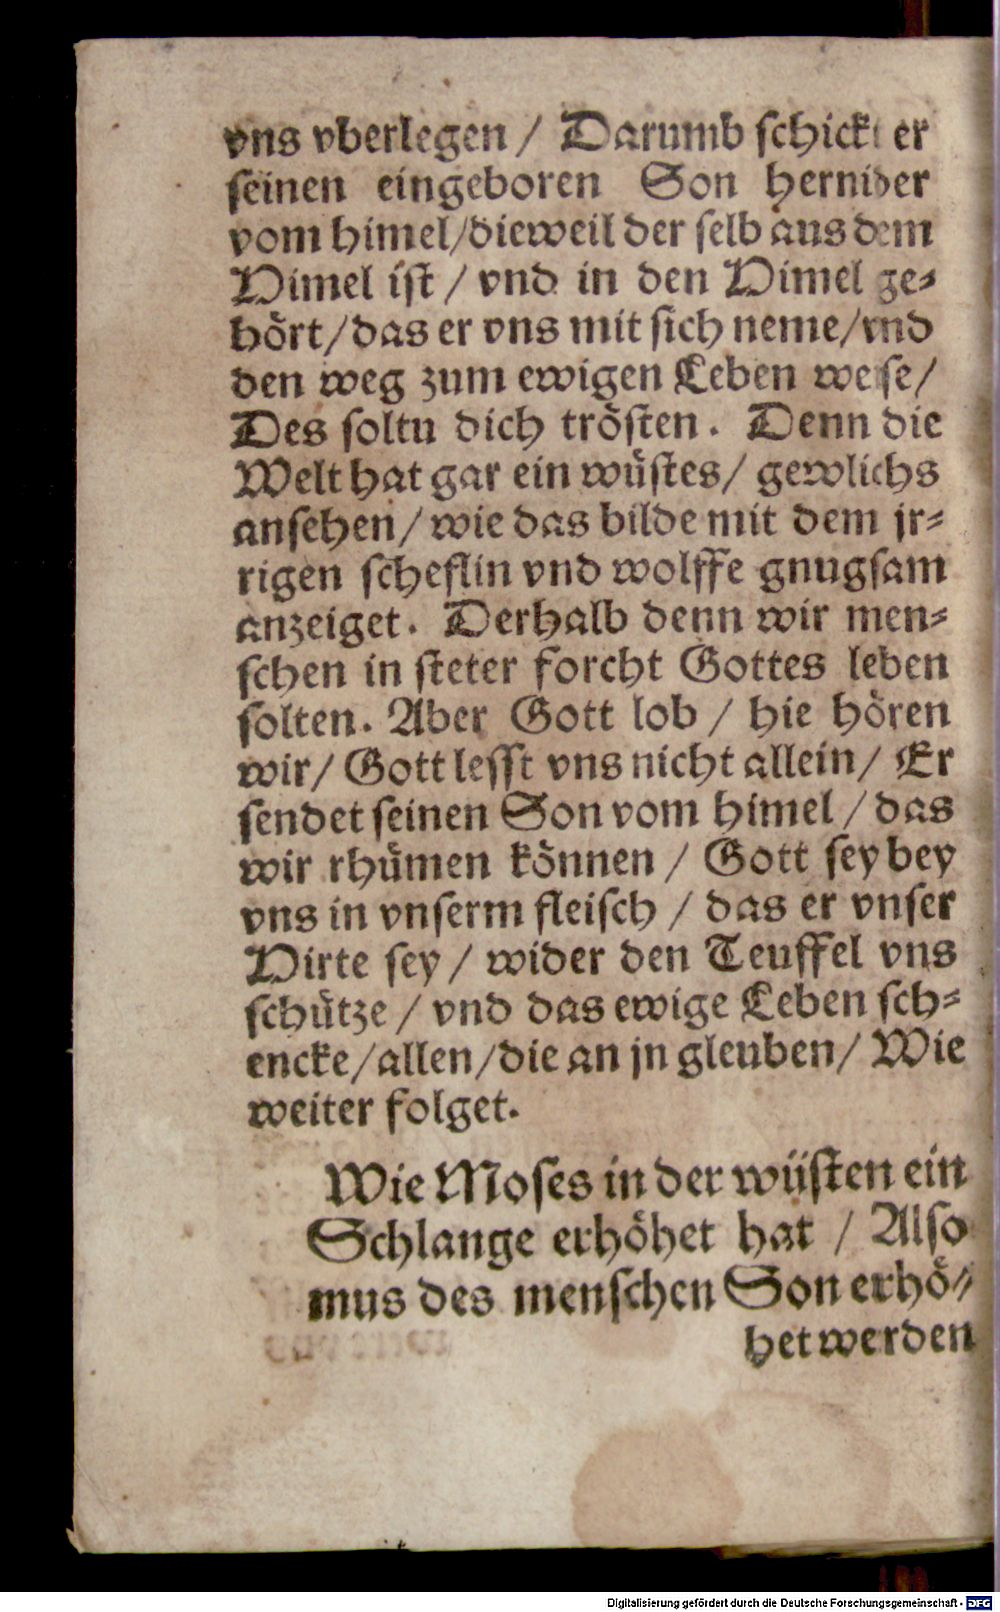 vns vberlegen / Darumb schickt er
seinen eingeboren Son hernider
vom himel/dieweil der selb aus dem
Himel ist / vnd in den Himel ge-
hört/das er vns mit sich neme/vnd
den weg zum ewigen Leben weise/
Des soltu dich trösten. Denn die
Welt hat gar ein wüstes/ gewlichs
ansehen/ wie das bilde mit dem jr-
rigen scheflin vnd wolffe gnugsam
anzeiget. Derhalb denn wir men-
schen in steter forcht Gottes leben
solten. Aber Gott lob / hie hören
wir/ Gott lesst vns nicht allein/ Er
sendet seinen Son vom himel / das
wir rhümen können / Gott sey bey
vns in vnserm fleisch / das er vnser
Hirte sey / wider den Teuffel vns
schütze / vnd das ewige Leben sch-
encke/allen/die an jn gleuben/ Wie
weiter folget.
Wie Moses in der wüsten ein
Schlange erhöhet hat / Also
mus des menschen Son erhö-
het werden
Digitalisierung gefördert durch die Deutsche Forschungsgemeinschaft - DFG